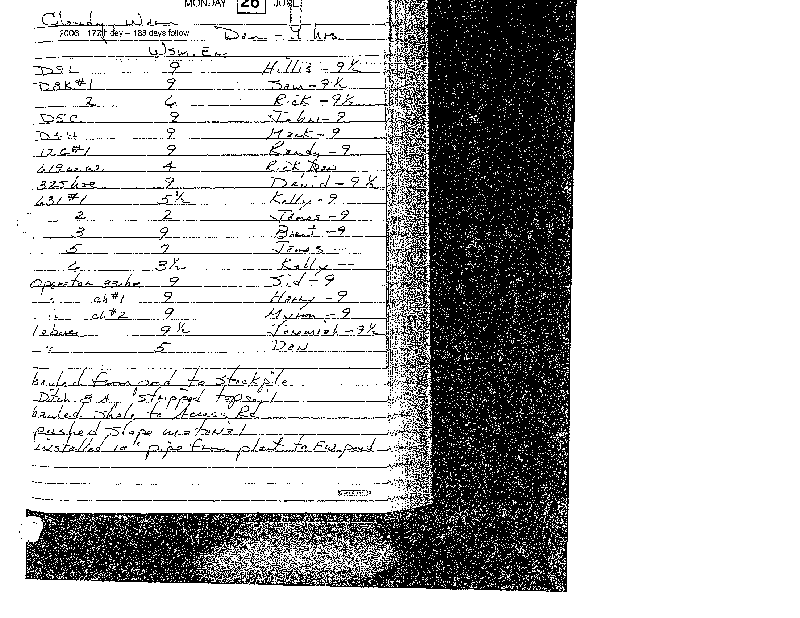 MONDAY 26 JUNE
Cloudy, Warm
2006 177th day – 188 days follow Don - 9 hrs
D8L 9 Hillis - 9 ½
D8K #1 9 Sam - 9 ½
2 6 Rick - 9 ½
9 John - 9
9 Mark - 9
#1 9 Randy - 9
4 Rick Don
325 hoe 9 David - 9 ½
631 #1 5 ½ Kelly - 9
2 2 James - 9
3 9 Brent - 9
5 7 James -
6 3 ½ Kelly -
operator 9 Sid - 9
" #1 9 Harry - 9
" #2 9 Myron - 9
labour 9 ½ Jeremiah - 3 ½
" 5 Don
hauled from pad to stockpile
Ditch stripped topsoil
hauled shale to Access Rd
pushed slope material
installed 10" pipe from plant to pond